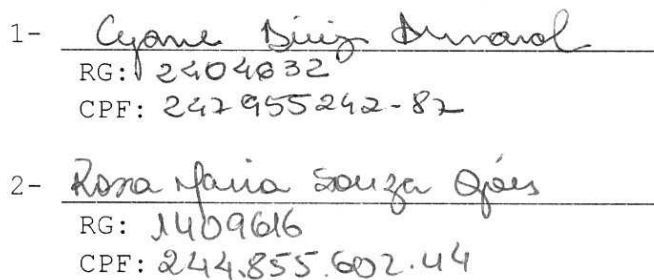 1- Cyane Diniz Dunarol
RG: 2404632
CPF: 247955242-87
2- Rosa Maria Souza Góes
RG: 1409616
CPF: 244.855.602.44